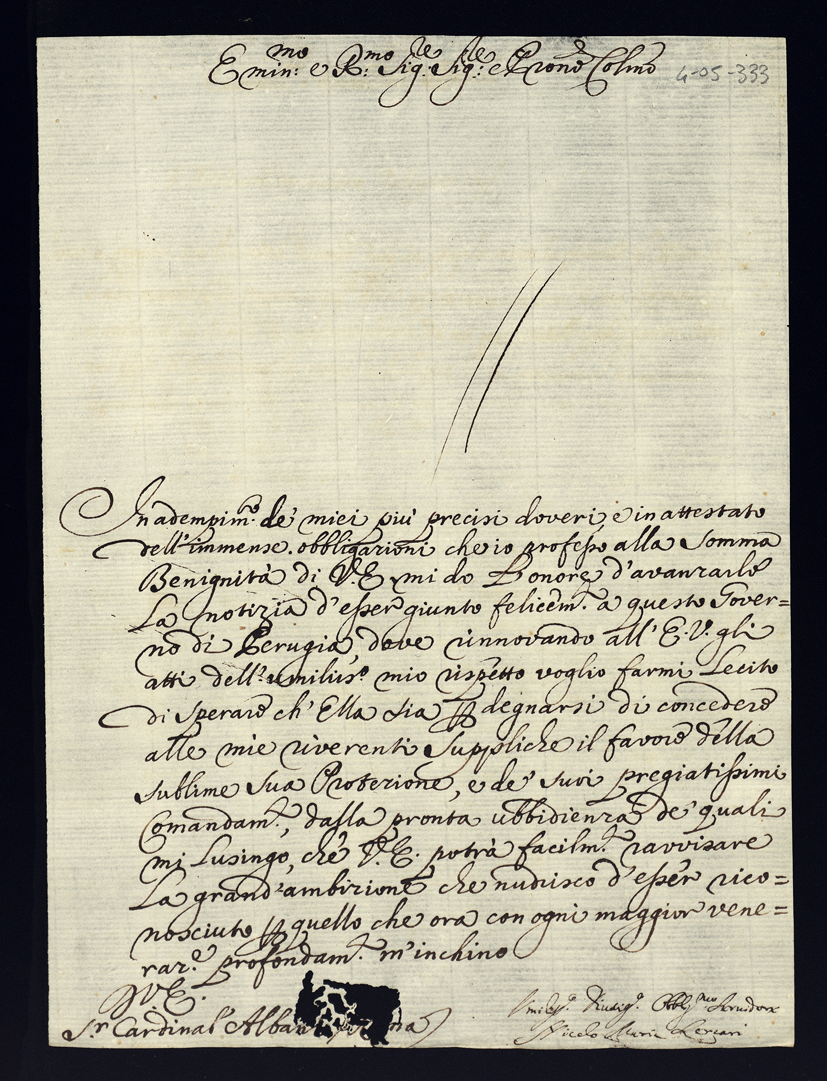 Emin:mo e R:mo Sig:re Sig:re e Pron̄e Colmo
4-05-333
In adempim:to de' miei più precisi doveri, e in attestato
dell'immense obbligazioni che io professo alla Somma
Benignità di V.E. mi do l'onore d'avanzarle
La notizia d'esser giunto felicem:te a questo Gover=
no di Perugia, dove rinnovando all'E.V. gli
atti dell'umiliss:o mio rispetto voglio farmi Lecito
di Sperare ch'Ella sia p degnarsi di concedere
alle mie riverenti Suppliche il favore della
sublime sua Protezione, e de' suoi pregiatissimi
Comandam:ti, dalla pronta ubbidienza de' quali
mi Lusingo, che V.E. potrà facilm:te ravvisare
La grand'ambizione che nudrisco d'esser rico=
nosciuto p quello che ora con ogni maggior vene=
raz:e profondam:te m'inchino
D V.E.
S.r Cardinal' Alba
Umiliss:o Divotiss:o Obblig:mo Servidore
Nicolo Maria Lercari